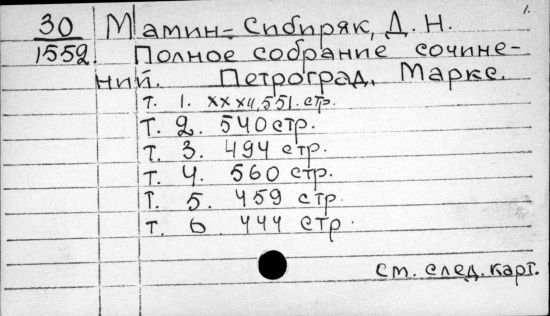 1.
30 Мамин-Сибиряк, Д. Н.
1552 Полное собрание сочине-
ний. Петроград, Маркс.
т. 1. XXXII, 551. стр.
т. 2. 540 стр.
т. 3. 494 стр.
т. 4. 560 стр.
т. 5. 459 стр.
т. 6. 444 стр.
см. след. карт.